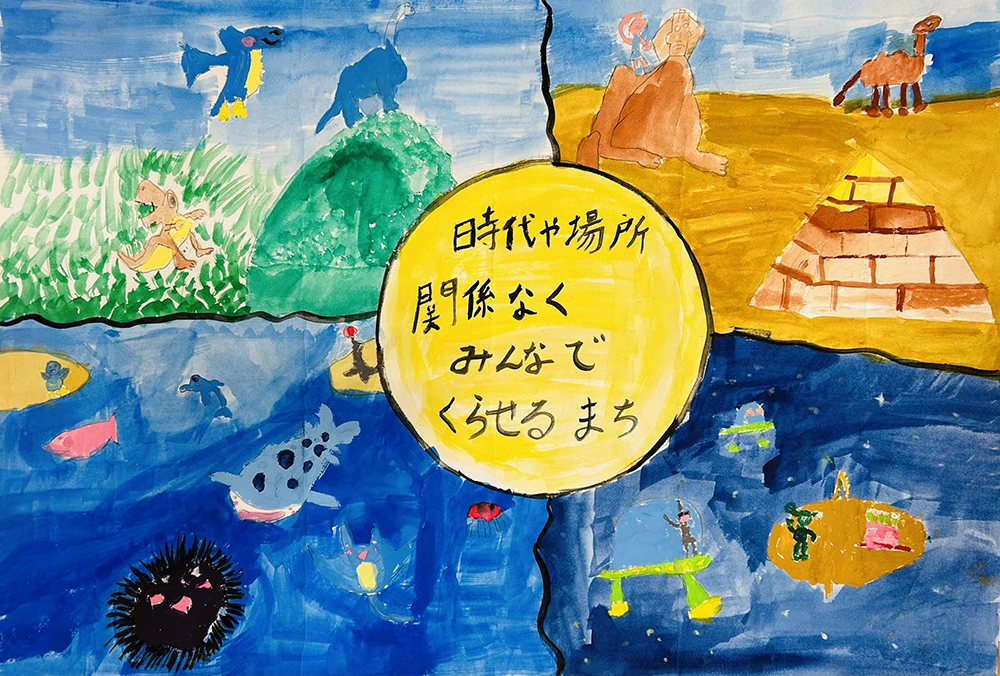 時代や場所
関係なく
みんなで
くらせるまち